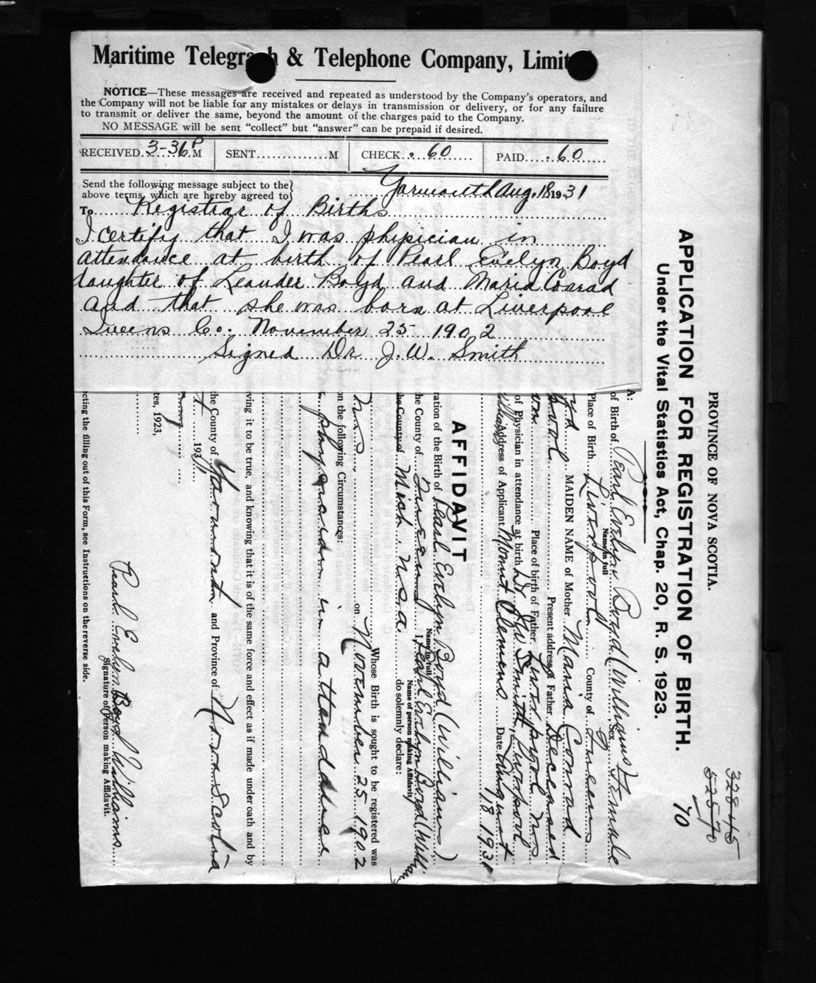 Maritime Telegraph & Telephone Company, Limit
NOTICE—These messages are received and repeated as understood by the Company's operators, and
the Company will not be liable for any mistakes or delays in transmission or delivery, or for any failure
to transmit or deliver the same, beyond the amount of the charges paid to the Company.
NO MESSAGE will be sent "collect" but "answer" can be prepaid if desired.
RECEIVED 3-36 P M SENT M CHECK .60 PAID .60
Send the following message subject to the
above terms, which are hereby agreed to
Yarmouth Aug. 18 1931
To Registrar of Births
I certify that I was phipician in
attendance at birth of Pearl Evelyn Boyd
daughter of Leander Boyd and Maria Conrad
and that she was born at Liverpool
Queens Co. November 25 1902
Signed Dr J.W. Smith
328-45
52570
70
PROVINCE OF NOVA SCOTIA.
APPLICATION FOR REGISTRATION OF BIRTH.
Under the Vital Statistics Act, Chap. 20, R. S. 1923.
of Birth of Pearl Evelyn Boyd (Williams) Sex Female
Name in full
Place of Birth Liverpool County of Queens
yd MAIDEN NAME of Mother Maria Conrad
pool Present address of Father Deceased
Place of birth of Father Liverpool NS
of Physician in attendance at birth Dr JW Smith, Liverpool
Address of Applicant Mount Clemens Date August 18 1931
AFFIDAVIT
ration of the Birth of Pearl Evelyn Boyd (Williams)
Name in full
he County of Queens Pearl Evelyn Boyd (Williams
Name of person making Affidavit
he County of Mich. U.S.A. do solemnly declare:
Whose Birth is sought to be registered was
N.S. on November 25 1902
on the following Circumstances:
physician in attendance
ving it to be true, and knowing that it is of the same force and effect as if made under oath and by
the County of Yarmouth and Province of Nova Scotia
193
tes, 1923,
Pearl Evelyn Boyd Williams
Signature of person making Affidavit.
ecting the filling out of this Form, see Instructions on the reverse side.